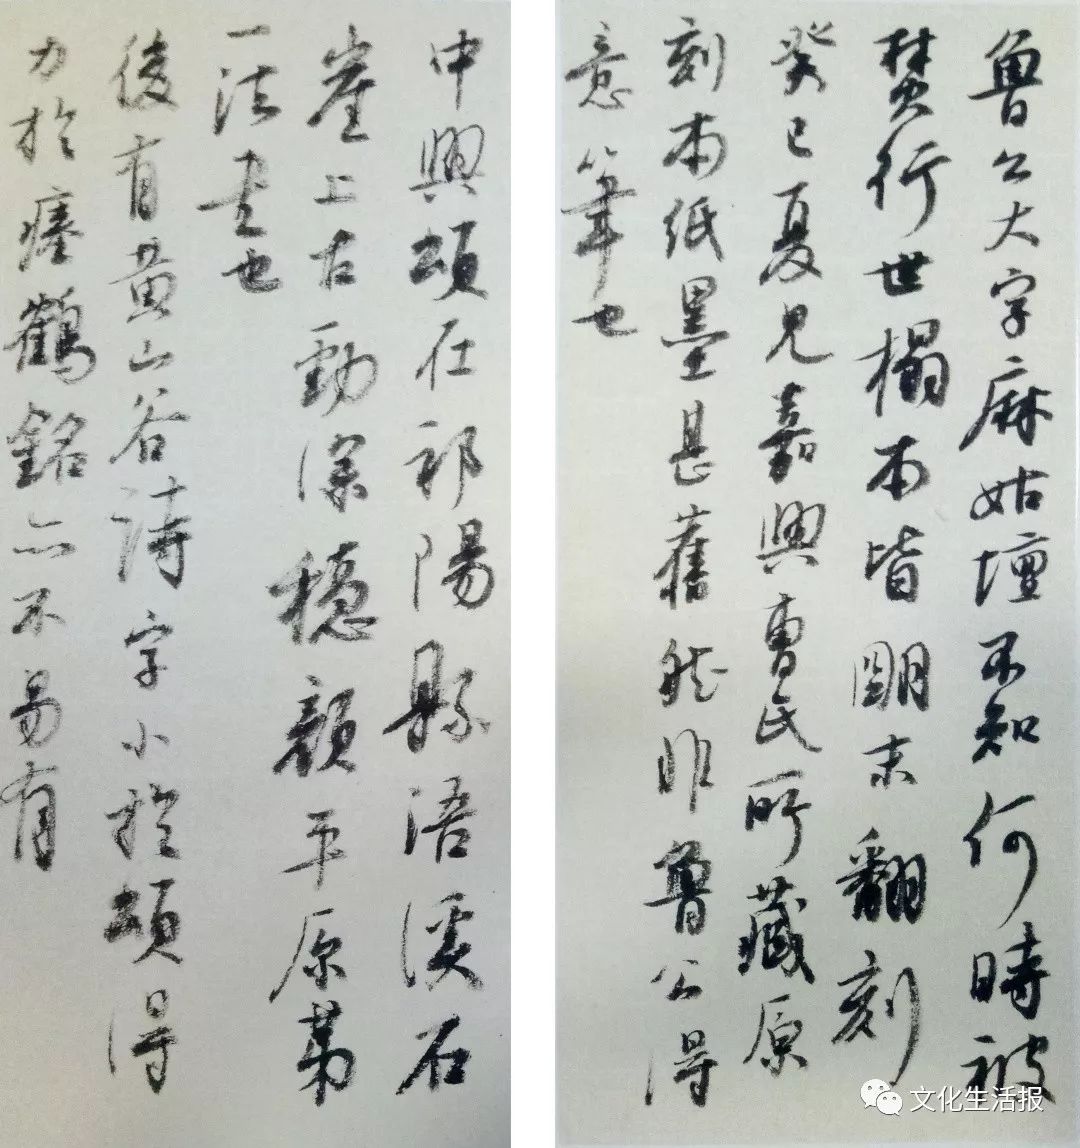 魯公大字麻姑壇不知何時被
焚行世榻本皆朙末翻刻
癸巳夏見嘉興曹氏所藏原
刻本紙墨甚舊然非魯公得
意筆也
中興頌在祁陽縣浯溪石
崖上古勁深穩顏平原第
一法書也
後有黃山谷詩字小於頌得
力於瘞鶴銘亦不易有
文化生活报